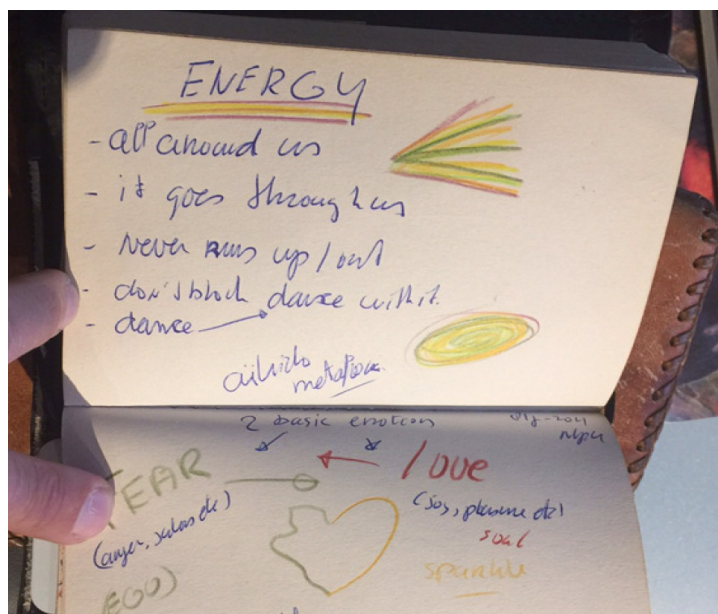 ENERGY
- all around us
- it goes through us
- never runs up / out
- don't block dance with it.
- dance
aikido
metaphor
2 basic emotion
FEAR
love
(anger, sadness etc)
(joy, pleasure etc)
soul
EGO)
sparkle